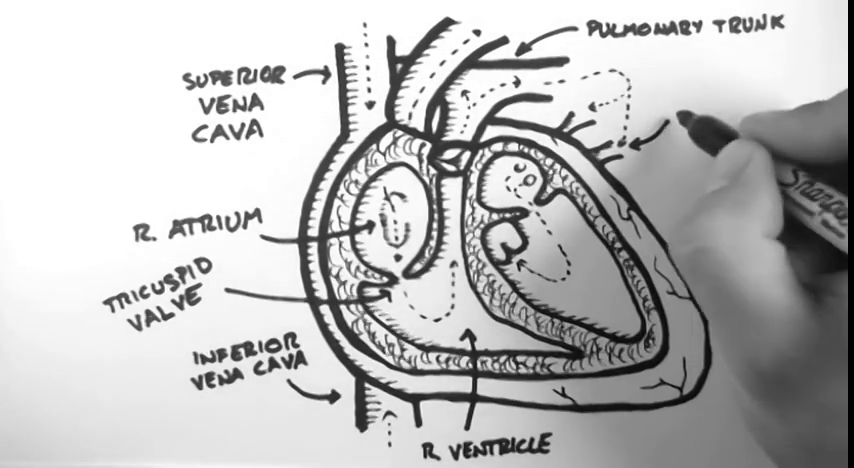 PULMONARY TRUNK
SUPERIOR
VENA
CAVA
R. ATRIUM
TRICUSPID
VALVE
INFERIOR
VENA CAVA
R. VENTRICLE
Sharpie